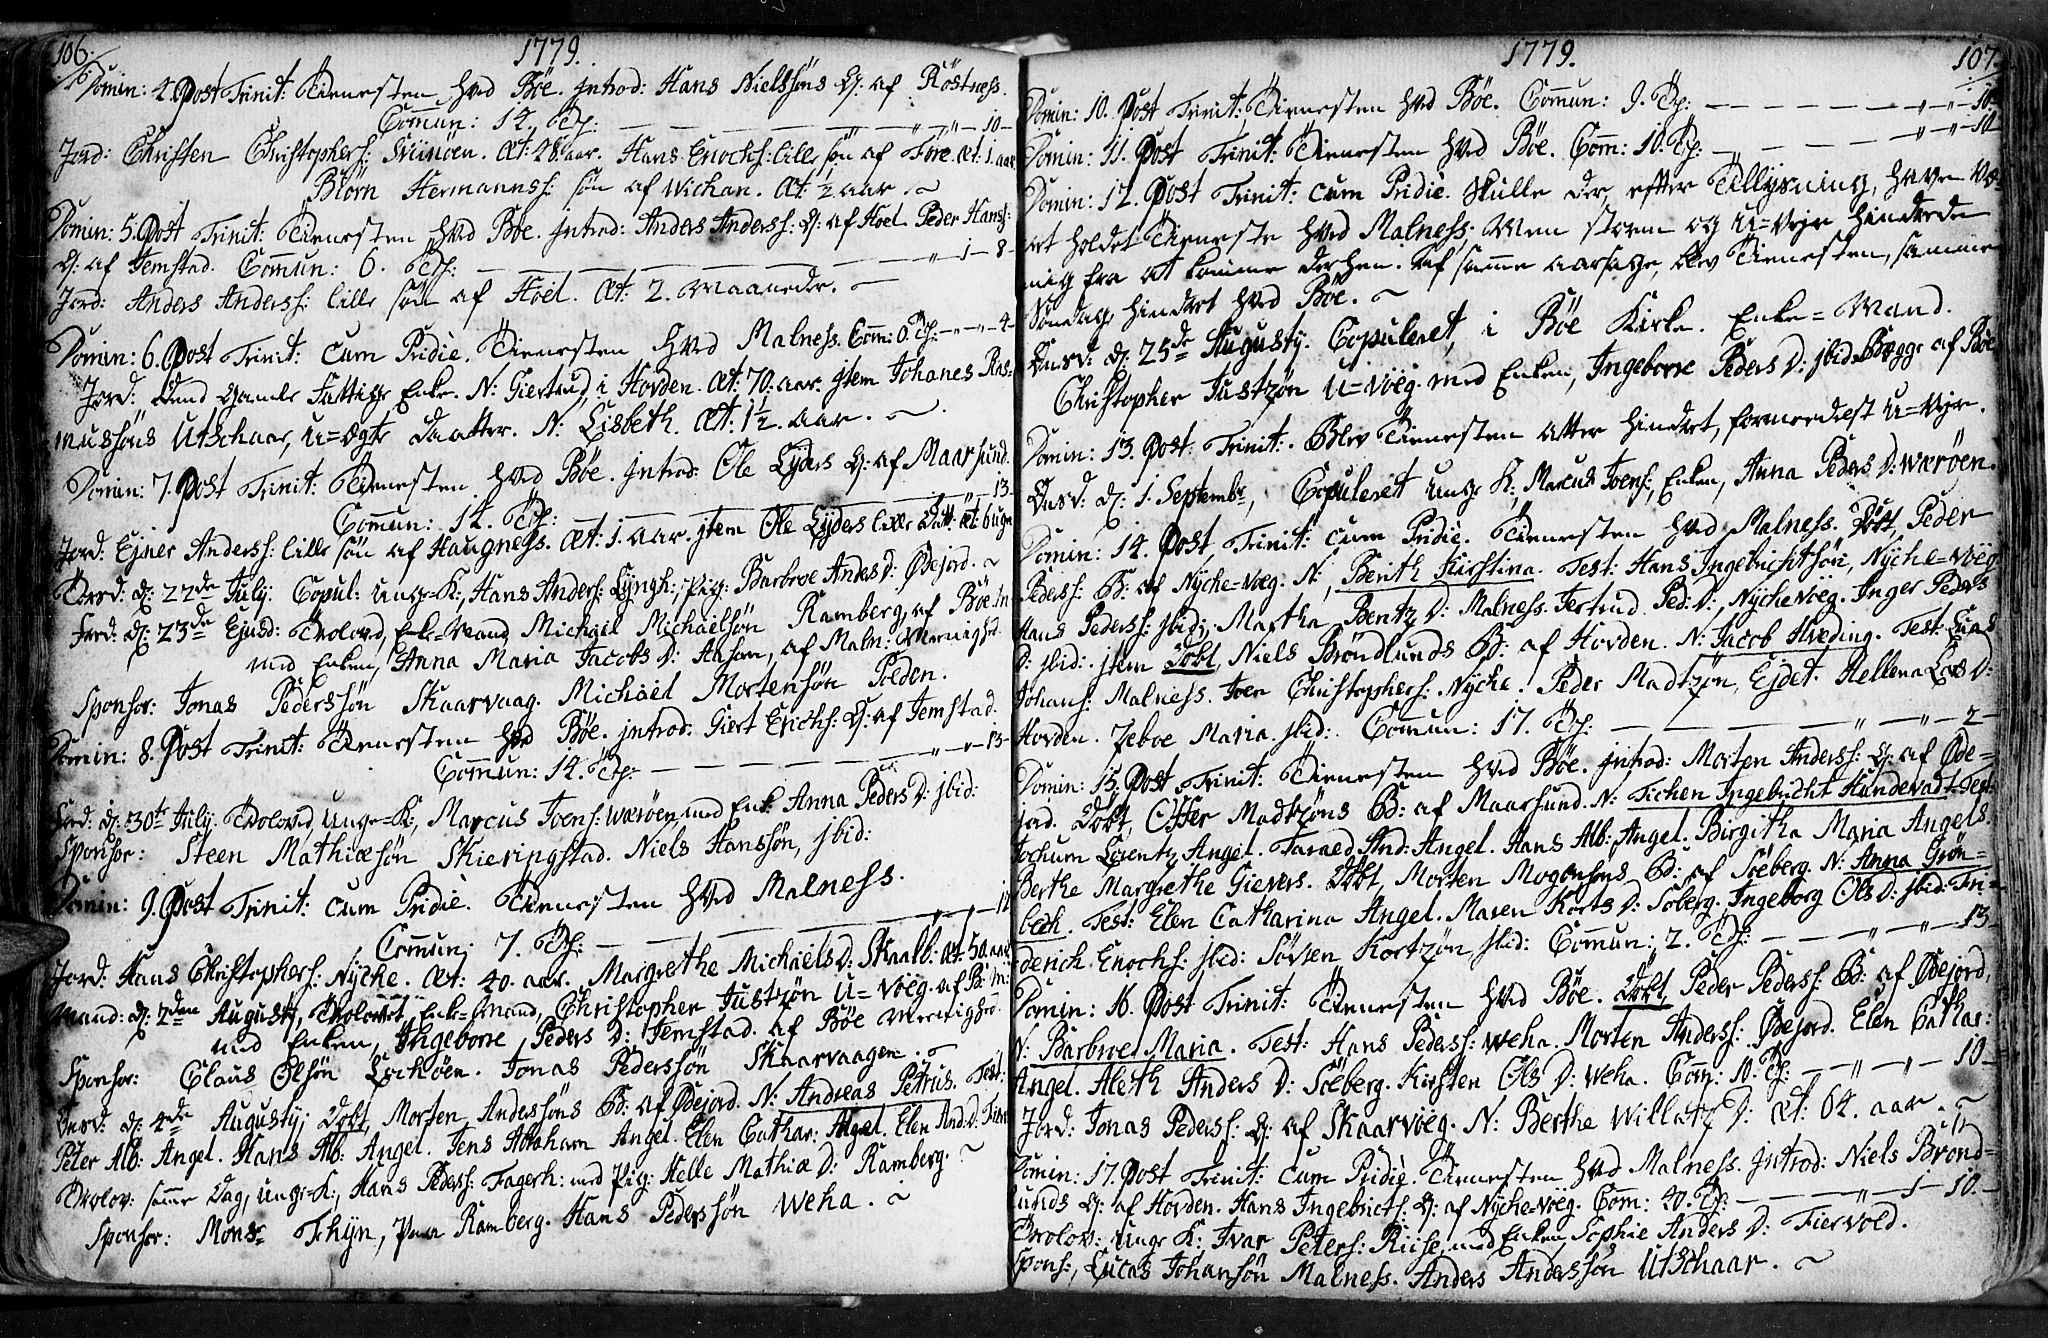 106.
1779.
Domin: 4. Post Trinit: Tienesten hved Böe. introd: Hans Nielssöns Q: af Röstness.
Com̄un: 14. Pp: — — — — — — — „ „ — 10 —
Jord: Christen Christophers: Sviinöen. Æt: 48. aar. Hans Enochs: lille sön af Före. Æt: 1. aar
Biörn Hermanns: sön af Wichan. Æt: ½ aar. ~
Domin: 5. Post Trinit: Tienesten hved Böe. introd: Anders Anders: Q: af Hoel. Peder Hans:
Q: af Jemstad. Com̄un: 6. Pp: — — — — — — — „ — 1 — 8 —
Jord: Anders Anders: lille sön af Höel. Æt: 2. Maaneder. —
Domin: 6. Post Trinit: cum Pridie. Tienesten hved Malness. Com̄: 0. Pp: — „ — „ — 4 —
Jord: Dend gamle Fattige Enke. N: Giertrud i Hovden. Æt: 70. aar. jtem Johanes Ras=
mussöns Utschaar, u=ægte daatter. N: Lisbeth. Æt: 1½. aar. ~
Domin: 7. Post Trinit: Tienesten hved Böe. introd: Ole Lyders Q: af Maarsund.
Com̄un: 14. Pp: — — — — — — 13 —
Jord: Ejner Anders: lille sön af Haugness. Æt: 1. aar. jtem Ole Lyders lille Datt: Æt: 6 uger
Torsd: d: 22de July. Copul: unge=K:, Hans Anders: Lyngh:, Pig: Barbroe Anders D: Ödejord. ~
Fred: d: 23de Ejusd: Trolovd, Enke-Mand Michael Michaelsön Ramberg, af Böe M:
med Enken, Anna Maria Jacobs D: Aasan, af Maln: Meenighed.
Sponsor: Jonas Pederssön Skaarvaag. Michael Mortensön Polden.
Domin: 8. Post Trinit: Tienesten hved Böe. introd: Giert Erichs: Q: af Jemstad.
Com̄un: 14. Pp: — — — — — — „ — „ — 13 —
Fred: d: 30te July. Trolovd, unge=K:, Marcus Joens: Væröen med Enk: Anna Peders D: jbid:
Sponsor: Steen Mathiæsön Skieringstad. Niels Hanssön, jbid:
Domin: 9. Post Trinit: cum Pridie. Tienesten hved Malness.
Com̄un: 7. Pp: — — — — — — „ — „ — 12
Jord: Hans Christophers: Nyche. Æt: 40. aar. Margrethe Michaels D: Skaalb: Æt: 50. aar
Mand: d: 2den Augusty, Trolovet, Enke=Mand, Christopher Justzön U=Voeg. af B: M:
med Enken, Ingeborre Peders D: Jemstad. af Böe Meenighed.
Sponsor: Claus Olsön Lochöen. Jonas Pederssön Skaarvaagen. ~
Onsd: d: 4de Augusty; Döbt, Morten Anderssöns B: af Ödejord. N: Andreas Petrus. Test:
Peter Alb: Angel. Hans Alb: Angel. Jens Abraham Angel. Elen Cathar: Angel. Elen And: D: Fierv
Trolov: samme Dag, unge=K:, Hans Peders: Fagerh: med Pig: Helle Mathiæ D: Ramberg. ~
Sponsor: Monsr Thyn, paa Ramberg. Hans Pederssön Weha. ~
1779.
107.
Domin: 10. Post Trinit: Tienesten hved Böe. Com̄un: 9. Pp: — — — — — „ — „ — 10 —
Domin: 11. Post Trinit: Tienesten hved Böe. Com̄: 10. Pp: — — — — — „ — „ — 10
Domin: 12. Post Trinit: cum Pridie. Skulle der, efter Tillysning, have væ=
ret holdet Tieneste hved Malness. Men storm og U=Vejr hindrede
mig fra at komme derhen. Af samme aarsage, blev Tienesten, samme
Söndag, hindret hved Böe. ~
Onsd: d: 25de Augusty. Copuleret, i Böe Kirke. Enke=Mand.
Christopher Justzön U=Voeg. med Enken, Ingeborre Peders D: jbid: Begge af Böe
Domin: 13. Post Trinit: Blev Tienesten atter hindret, formedelst U=Vejr.
Onsd: d: 1. Septembr, Copuleret unge K: Marcus Joens:, Enken, Anna Peders D: Væröen.
Domin: 14. Post Trinit: cum Pridie. Tienesten hved Malness. Döbt, Peder
Peders: B: af Nyche=Voeg. N: Berith Kirstina. Test: Hans Ingebrichtsön, Nyche=Voeg
Hans Peders: jbid:, Martha Bentz D: Malness. Jertrud Ped: D:, Nychevoeg. Inger Peders
D: jbid: jtem Döbt, Niels Bröndlunds B: af Hovden. N: Jacob Hveding. Test: Lucas
Johans: Malness. Joen Christophers: Nyche. Peder Madtzön, Ejdet. Hellena Lars D:
Hovden. Zeboe Maria jbid: Com̄un: 17. Pp: — — — — — „ — „ — 2 —
Domin: 15. Post Trinit: Tienesten hved Böe. introd: Morten Anders: Q: af Öde=
jord. Döbt, Offer Madtzöns B: af Maarsund. N: Tichen Ingebricht Hundevadt. Test:
Jochum Lorentz Angel. Taraed And: Angel. Hans Alb: Angel. Birgitha Maria Angels.
Berthe Margrethe Gievers. Döbt, Morten Mogensöns B: af Söeberg. N: Anna Grön=
bech. Test: Elen Catharina Angel. Maren Korts D: Söberg. Ingeborg Ols D: jbid: Fri=
derich Enochs: jbid: Sören Kortzön jbid: Com̄un: 2. Pp: — — — „ — „ — 13 —
Domin: 16. Post Trinit: Tienesten hved Böe. Döbt, Peder Peders: B: af Ödejord,
N: Barbroe Maria. Test: Hans Peders: Weha. Morten Anders: Ödejord. Elen Cathar:
Angel. Aleth Anders D: Söeberg. Kirsten Ols D: Weha. Com̄: 10. Pp: — „ — „ — 10 —
Jord: Jonas Peders: Q: af Skaarvoeg. N: Berthe Willatz D: Æt: 64. aar. ~
Domin: 17. Post Trinit: cum Pridie. Tienesten hved Malness. Introd: Niels Brönd=
lunds Q: af Hovden. Hans Ingebricts: Q: af Nyche=Voeg. Com̄: 40. Pp: — — — „ — 1 — 10. —
Trolov: unge K: Ivar Peters: Riise, med Enken, Sophie Anders D: Fiervold.
Spons:, Lucas Johansön Malness. Anders Anderssön Utschaar. ~